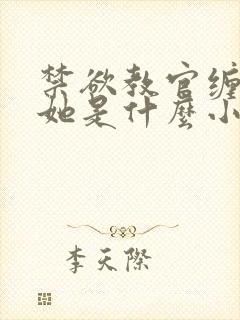 禁欲教官缠
她是什麼小
李天際